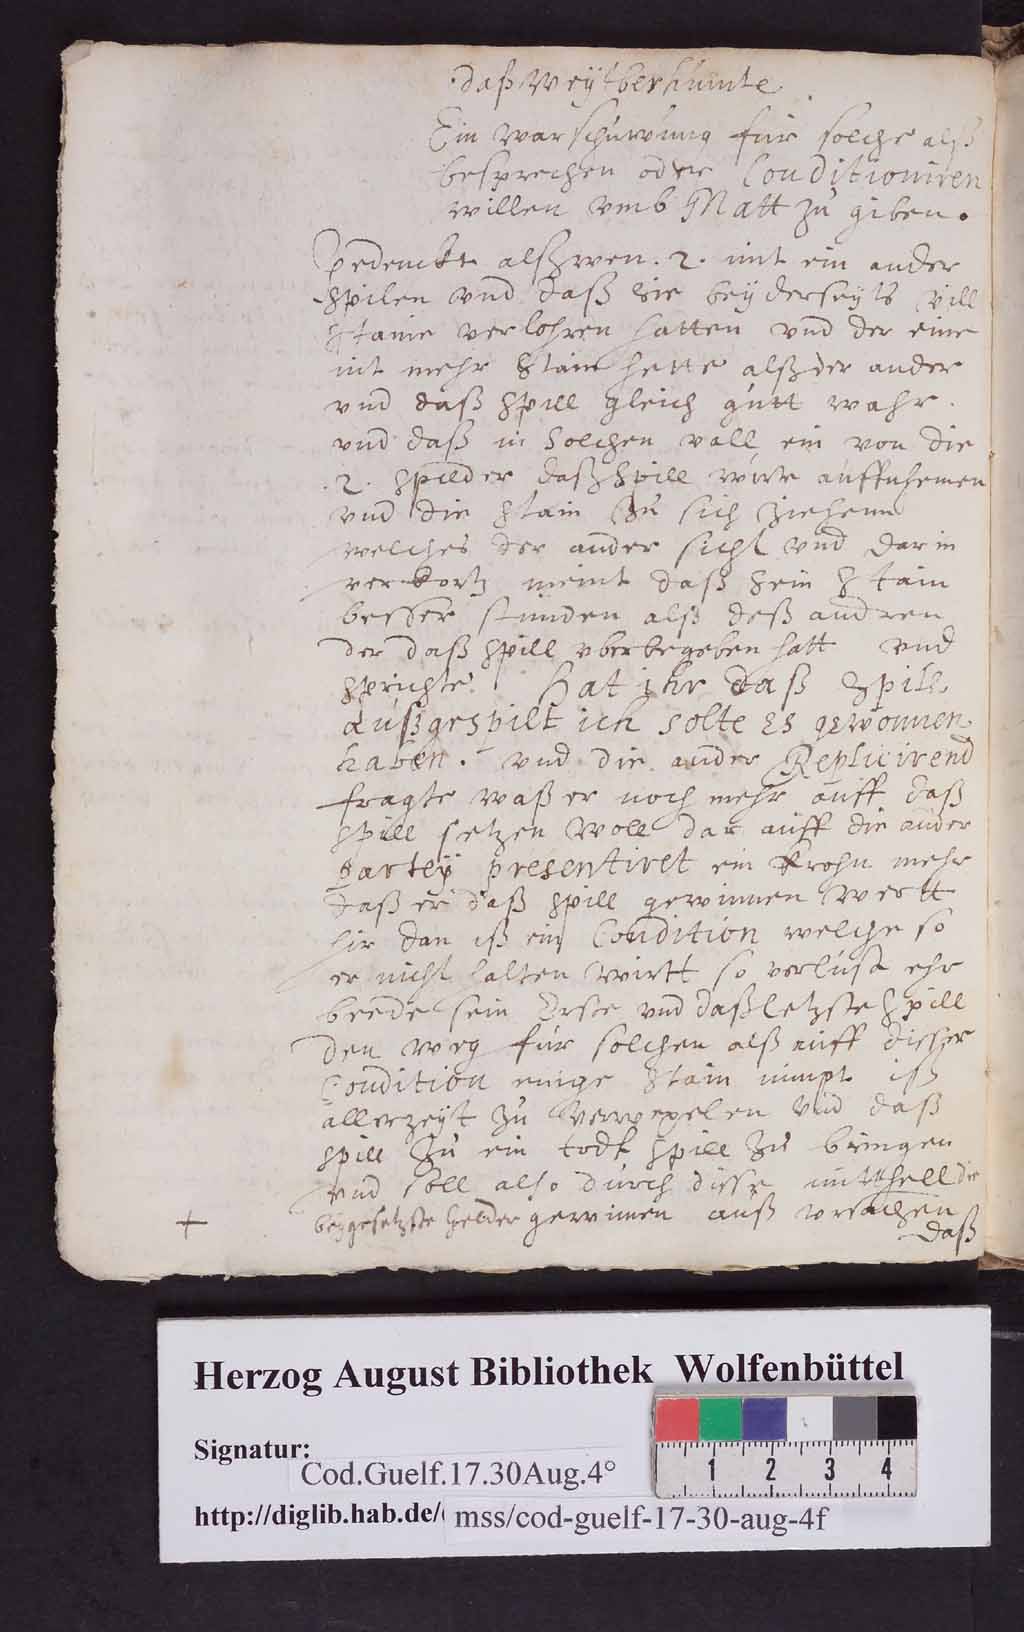 daß Weÿtberhümte
Ein warschuwung für solche alß
besprechen oder Conditioniren
willen vmb Matt zu giben.
Bedenckt alß wen .2. mit ein ander
spilen vnd daß sie beÿderseyts vill
staine verlohren hatten vnd der eine
nit mehr stain hette alß der ander
vnd daß spill gleich gutt wahr.
vnd daß in solchen vall ein von die
.2. spilder daß spill wirt auffnhemen
vnd die stain zu sich ziehenn
welches der ander sicht vnd darin
verkortz meint daß sein stain
besser stunden alß deß andren
der daß spill vbergegeben hatt vnd
sprichte. Hat ihr daß spill
außgespilt ich solte es gewonnen
haben. vnd die ander Replicirend
fragte waß er noch mehr auff daß
spill setzen woll dar auff die ander
parteÿ presentiret ein krohn mehr
daß er daß spill gewinnen wertt
hir dan iß ein Condition welche so
er nicht halten wirtt so verlust ehr
beede sein Erste vnd daß letzste spill
den weg für solchen alß auff dieser
Condition enige stain nimpt iß
allerzeyt zu verwexelen vnd daß
spill zu ein todt spill zu bringen
vnd soll also durch disse mittell die
beygesetzste gelder gewinnen auß vrsachen
+
daß
Herzog August Bibliothek Wolfenbüttel
Signatur:
Cod.Guelf.17.30Aug.4°
http://diglib.hab.de/ mss/cod-guelf-17-30-aug-4f
1 2 3 4